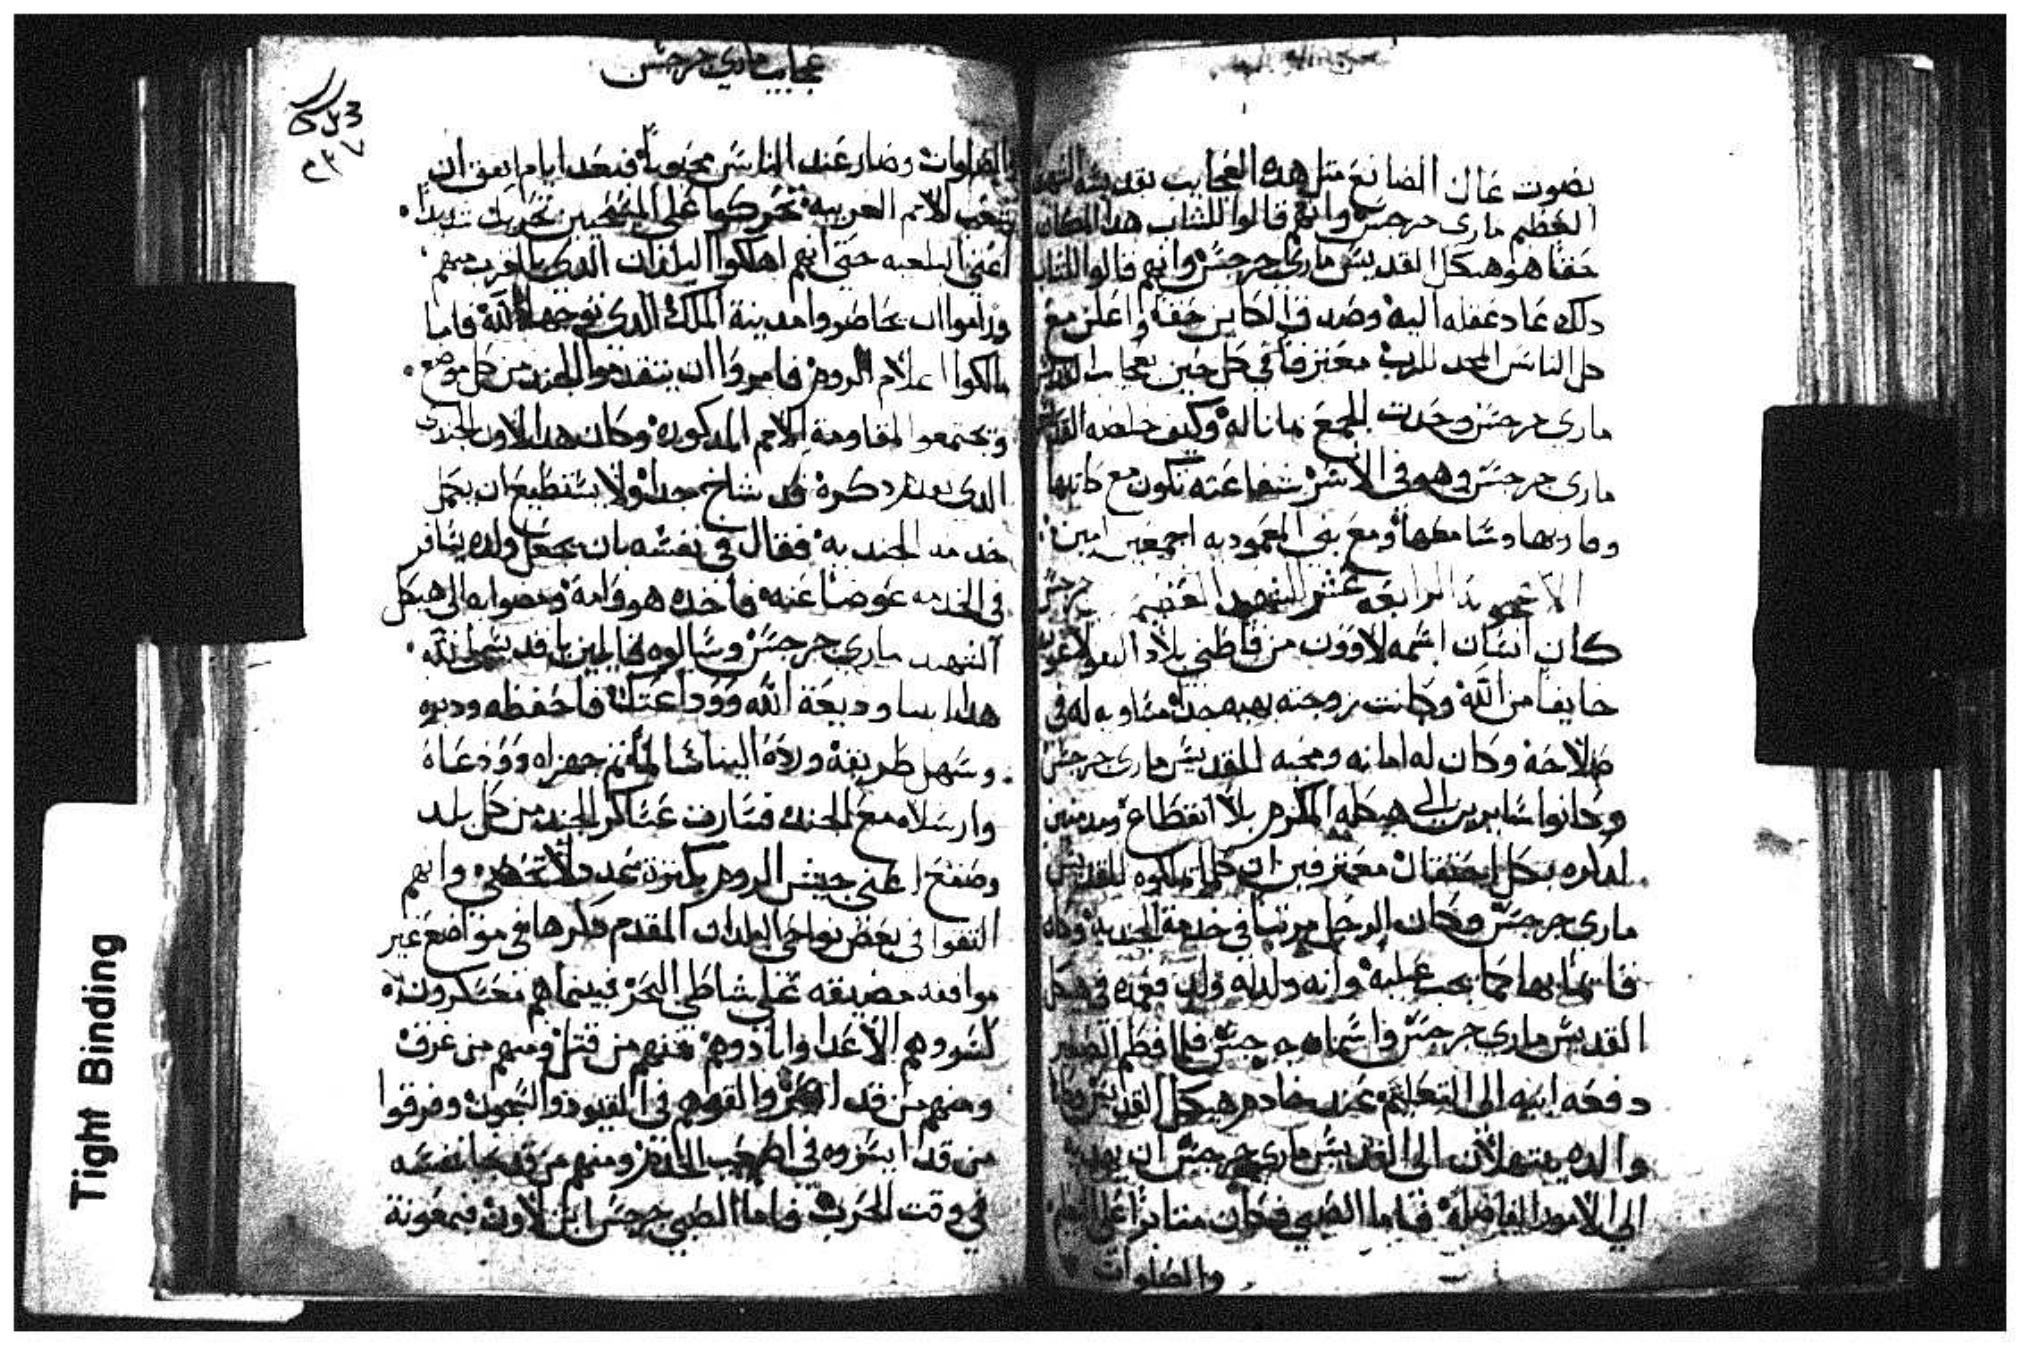 بصوت عال الصانع مثل هذه العجايب بقديسه الشهيد
العظيم ماري جرجس وانهم قالوا للشاب هذا المكان
حقا هو هيكل القديس ماري جرجس وانهم قالوا للشاب
ذلك عاد عقله اليه وصدق الكاين حقا واعلن مع
كل الناس المجد للرب معترفا في كل حين بعجايب القديس
ماري جرجس وحدث الجمع ما ناله وكيف خلصه القديس
ماري جرجس وهو في الاسر شفاعته تكون مع كاتبها
وقاريها وسامعها ومع بني المعموديه اجمعين امين
الاعجوبة الرابعه عشر للشهيد العظيم جرجس
كان انسان اسمه لاوون من قاطني بلاد
خايفا من الله وكانت زوجته بهيه جدا متساويه له في
صلاحه وكان له امانه ومحبه للقديس ماري جرجس
وكانوا سايرين الي هيكله المكرم بلا انقطاع
بكل احتفال معترفين ان كل للقديس
ماري جرجس وكان الرجل مرتبا في خدمة الجنديه وكان
قايما بها كما يجب عليه وانه ولد له ولد فعمده في هيكل
القديس ماري جرجس واسماه جرجس فلما فطم الصغير
دفعه ابيه الي التعليم عند خادم هيكل القديس وكان
والده يبتهلان الي القديس ماري جرجس ان يهديه
الي الامور الفاضلة فاما الصبي فكان مثابرا علي
والصلوات
عجايب ماري جرجس
والصلوات وصار عند الناس محبوبا فبعد ايام اتفق ان
الامم الغريبه تحركوا علي المسيحيين تحريك شديدا
اعني حتي انهم اهلكوا البلدان الذي بالقرب منهم
وراموا ان يحاصروا مدينة الملك الذي توجها الله فاما
مالكوا اعلام الروم فامروا ان يتقدموا الجند من كل موضع
ويجتمعوا لمقاومة الامم المذكوره وكان هذا لاون الجندي
الذي تقدم ذكره قد شاخ جدا ولا يستطيع ان يكمل
خدمة الجنديه فقال في نفسه بان يجعل ولده يسافر
في الخدمه عوضا عنه فاخذه هو وامه ومضوا به الي هيكل
الشهيد ماري جرجس وسالوه قايلين يا قديس الله
هذا ابننا وديعة الله ووداعتك فاحفظه ودبره
وسهل طريقه ورده الينا سالما ثم جهزاه وودعاه
وارسلاه مع الجند فسارت عساكر الجند من كل بلد
وصقع اعني جيش الروم بكثرة عدد لا تحصي وانهم
التقوا في بعض نواحي البلدان المقدم ذكرها في مواضع غير
موافقه مضيقه علي شاطي البحر فبينما هم معسكرون
كسروهم الاعدا وابادوهم فمنهم من قتل ومنهم من غرق
ومنهم من قد اسر والقوهم في القيود والسجون وفرقوا
من قد ايسروه في ومنهم من قد نجا نفسه
في وقت الحرب فاما الصبي جرجس ابن لاون فبمعونة